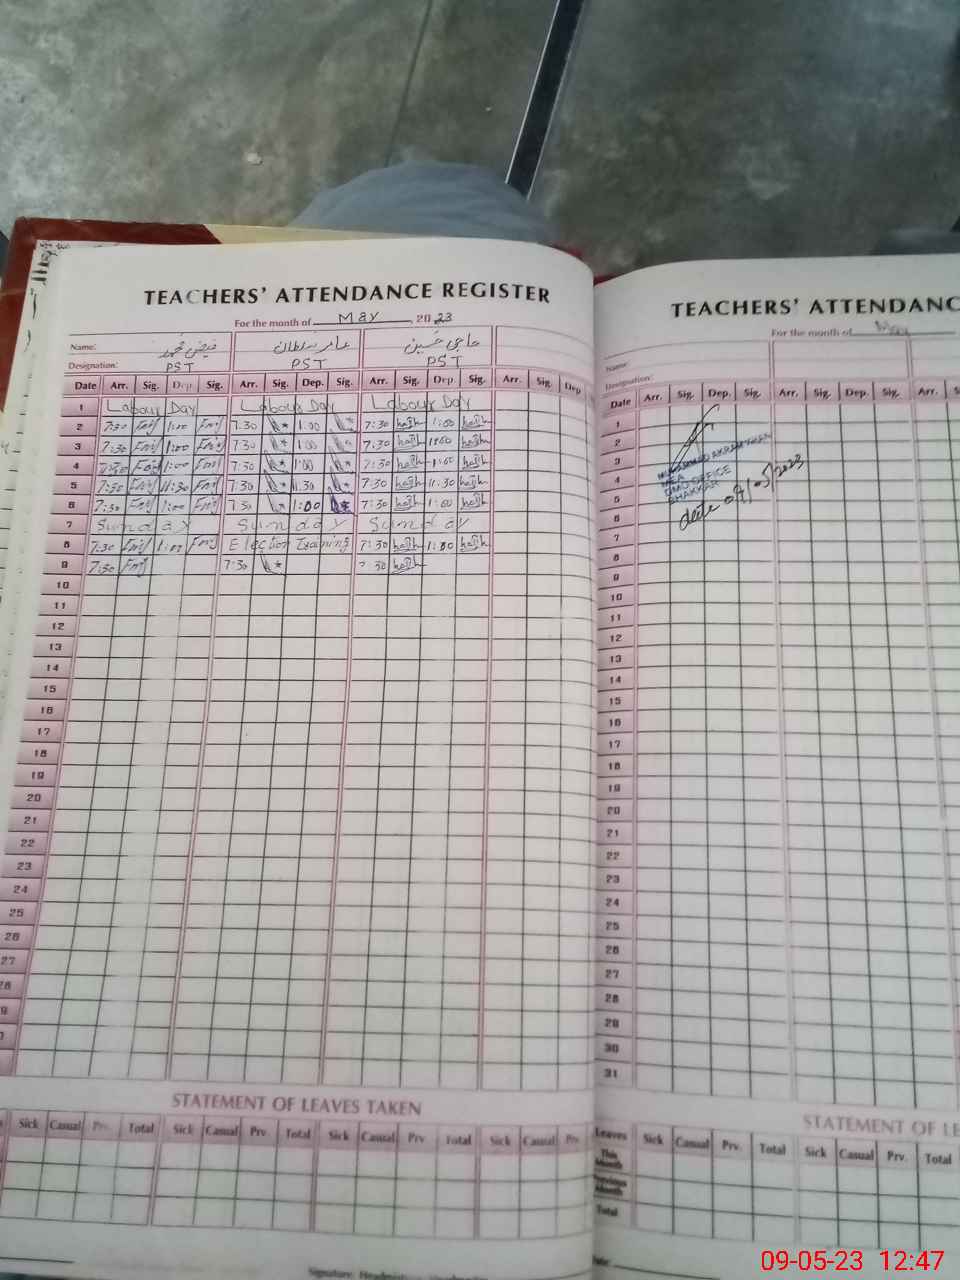 TEACHERS' ATTENDANCE REGISTER
For the month of May, 2023
Name: فیض محمد عامر سلطان حاجی حسین
Designation: PST PST PST
Date Arr. Sig. Dep. Sig. Arr. Sig. Dep. Sig. Arr. Sig. Dep. Sig. Arr. Sig. Dep
1 Labour Day Labour Day Labour Day
2 7:30 1:00 7:30 1:00 7:30 1:00
3 7:30 1:00 7:30 1:00 7:30 1:00
4 7:30 1:00 7:30 1:00 7:30 1:00
5 7:30 11:30 7:30 11:30 7:30 11:30
6 7:30 1:00 7:30 1:00 7:30 1:00
7 Sunday Sunday Sunday
8 7:30 1:00 Election Training 7:30 1:00
9 7:30 7:30 7 30
10
11
12
13
14
15
16
17
18
19
20
21
22
23
24
25
26
27
28
STATEMENT OF LEAVES TAKEN
Sick Casual Prv. Total Sick Casual Prv. Total Sick Casual Prv Total Sick Casual Prv
TEACHERS' ATTENDANC
For the month of May
Name:
Designation:
Date Arr. Sig. Dep. Sig. Arr. Sig. Dep. Sig. Arr.
1
2
3
4
5
6
7
8
9
10
11
12
13
14
15
16
17
18
19
20
21
22
23
24
25
26
27
28
29
30
31
MUHAMMAD AKRAM KHAN
MEA
DMO OFFICE
BHAKKAR
date 09/05/2023
STATEMENT OF LE
Leaves Sick Casual Prv. Total Sick Casual Prv. Total
This Month
Previous Month
Total
09-05-23 12:47